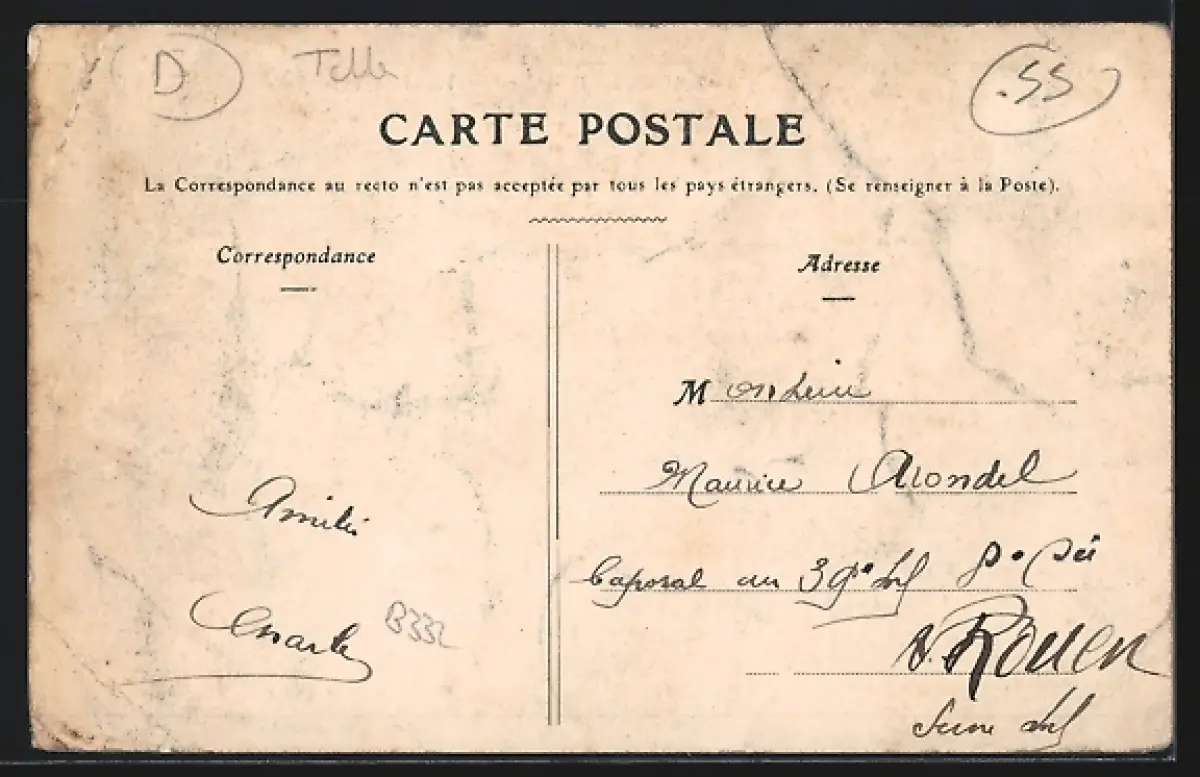 D
.55
CARTE POSTALE
La Correspondance au recto n'est pas acceptée par tous les pays étrangers. (Se renseigner à la Poste).
Correspondance
Amitié
Charles
B332
Adresse
Monsieur
Maurice Arondel
Caporal au 39e Inf
à Rouen
Seine Inf